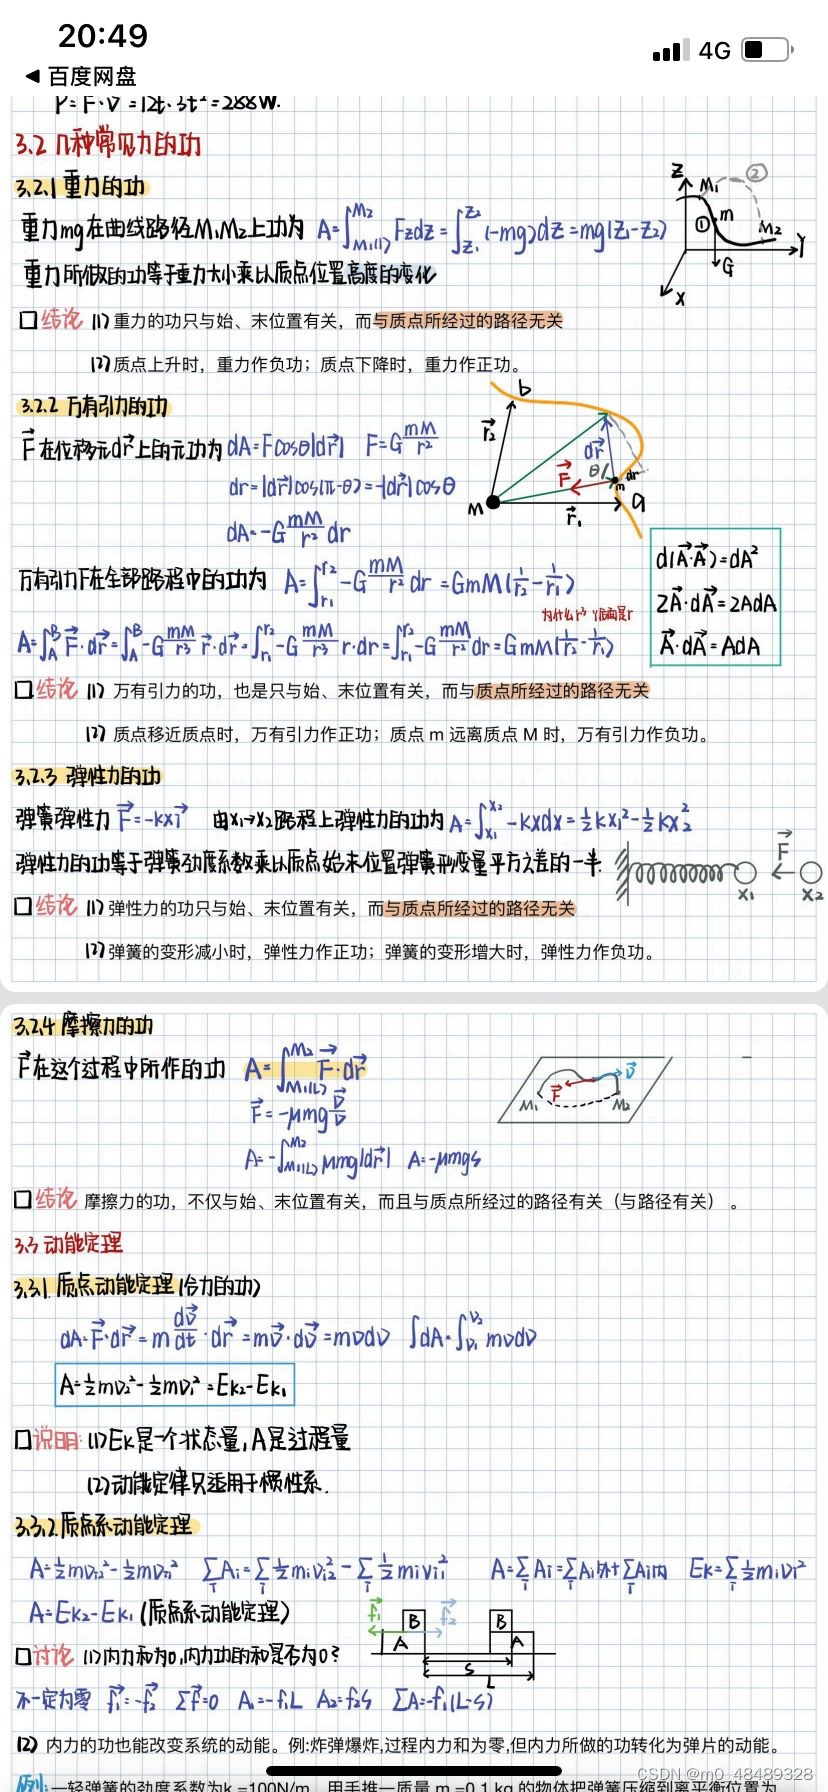 20:49
4G
◀ 百度网盘
P=F·v=12t·3t²=288W.
3.2 几种常见力的功
3.2.1 重力的功
重力mg在曲线路径M₁M₂上功为 A=∫_{M₁(L)}^{M₂} F_z dz=∫_{z₁}^{z₂}(-mg)dz=mg(z₁-z₂)
Z M₁ ② ① m M₂ Y G X
重力所做的功等于重力大小乘以质点位置高度的变化
口结论 (1) 重力的功只与始、末位置有关，而与质点所经过的路径无关
(2) 质点上升时，重力作负功；质点下降时，重力作正功。
3.2.2 万有引力的功
F⃗在位移元dr⃗上的元功为 dA=Fcosθ|dr⃗| F=G mM/r²
dr=|dr⃗|cos(π-θ)=-|dr⃗|cosθ
dA=-G mM/r² dr
b r⃗₂ dr⃗ θ dr F⃗ m M r⃗₁ a
万有引力F在全部路程中的功为 A=∫_{r₁}^{r₂}-G mM/r² dr=GmM(1/r₂-1/r₁)
A=∫_A^B F⃗·dr⃗=∫_A^B-G mM/r³ r⃗·dr⃗=∫_{r₁}^{r₂}-G mM/r³ r·dr=∫_{r₁}^{r₂}-G mM/r² dr=GmM(1/r₂-1/r₁)
d(A⃗·A⃗)=dA²
2A⃗·dA⃗=2AdA
A⃗·dA⃗=AdA
口结论 (1) 万有引力的功，也是只与始、末位置有关，而与质点所经过的路径无关
(2) 质点移近质点时，万有引力作正功；质点 m 远离质点 M 时，万有引力作负功。
3.2.3 弹性力的功
弹簧弹性力 F⃗=-kxi⃗ 由x₁→x₂路程上弹性力的功为 A=∫_{x₁}^{x₂}-kxdx=½kx₁²-½kx₂²
弹性力的功等于弹簧劲度系数乘以质点始末位置弹簧形变量平方之差的一半.
F⃗ x₁ x₂
口结论 (1) 弹性力的功只与始、末位置有关，而与质点所经过的路径无关
(2) 弹簧的变形减小时，弹性力作正功；弹簧的变形增大时，弹性力作负功。
3.2.4 摩擦力的功
F⃗在这个过程中所作的功 A=∫_{M₁(L)}^{M₂}F⃗·dr⃗
F⃗=-μmg v⃗/v
A=-∫_{M₁(L)}^{M₂}μmg|dr⃗| A=-μmgs
M₁ F⃗ v⃗ M₂
口结论 摩擦力的功，不仅与始、末位置有关，而且与质点所经过的路径有关（与路径有关）。
3.3 动能定理
3.3.1 质点动能定理(合力的功)
dA=F⃗·dr⃗=m dv⃗/dt·dr⃗=mv⃗·dv⃗=mvdv ∫dA=∫_{v₁}^{v₂}mvdv
A=½mv₂²-½mv₁²=Ek₂-Ek₁
口说明: (1)Ek是一个状态量,A是过程量
(2)动能定律只适用于惯性系.
3.3.2.质点系动能定理
A=½mv₁₂²-½mv₁₁² ∑ᵢAᵢ=∑ᵢ½mᵢvᵢ₂²-∑ᵢ½mᵢvᵢ₁² A=∑ᵢAᵢ=∑ᵢAᵢ外+∑ᵢAᵢ内 Ek=∑ᵢ½mᵢvᵢ²
A=Ek₂-Ek₁(质点系动能定理)
f⃗₁ B f⃗₂ A B A S L
口讨论 (1)内力和为0,内力功的和是否为0?
不一定为零 f⃗₁=-f⃗₂ ∑f⃗=0 A₁=-f₁L A₂=f₂s ∑A=-f₁(L-s)
(2) 内力的功也能改变系统的动能。例:炸弹爆炸,过程内力和为零,但内力所做的功转化为弹片的动能。
CSDN @m0_48489328
例: 一轻弹簧的劲度系数为k =100N/m，用手推一质量 m =0.1 kg 的物体把弹簧压缩到离平衡位置为